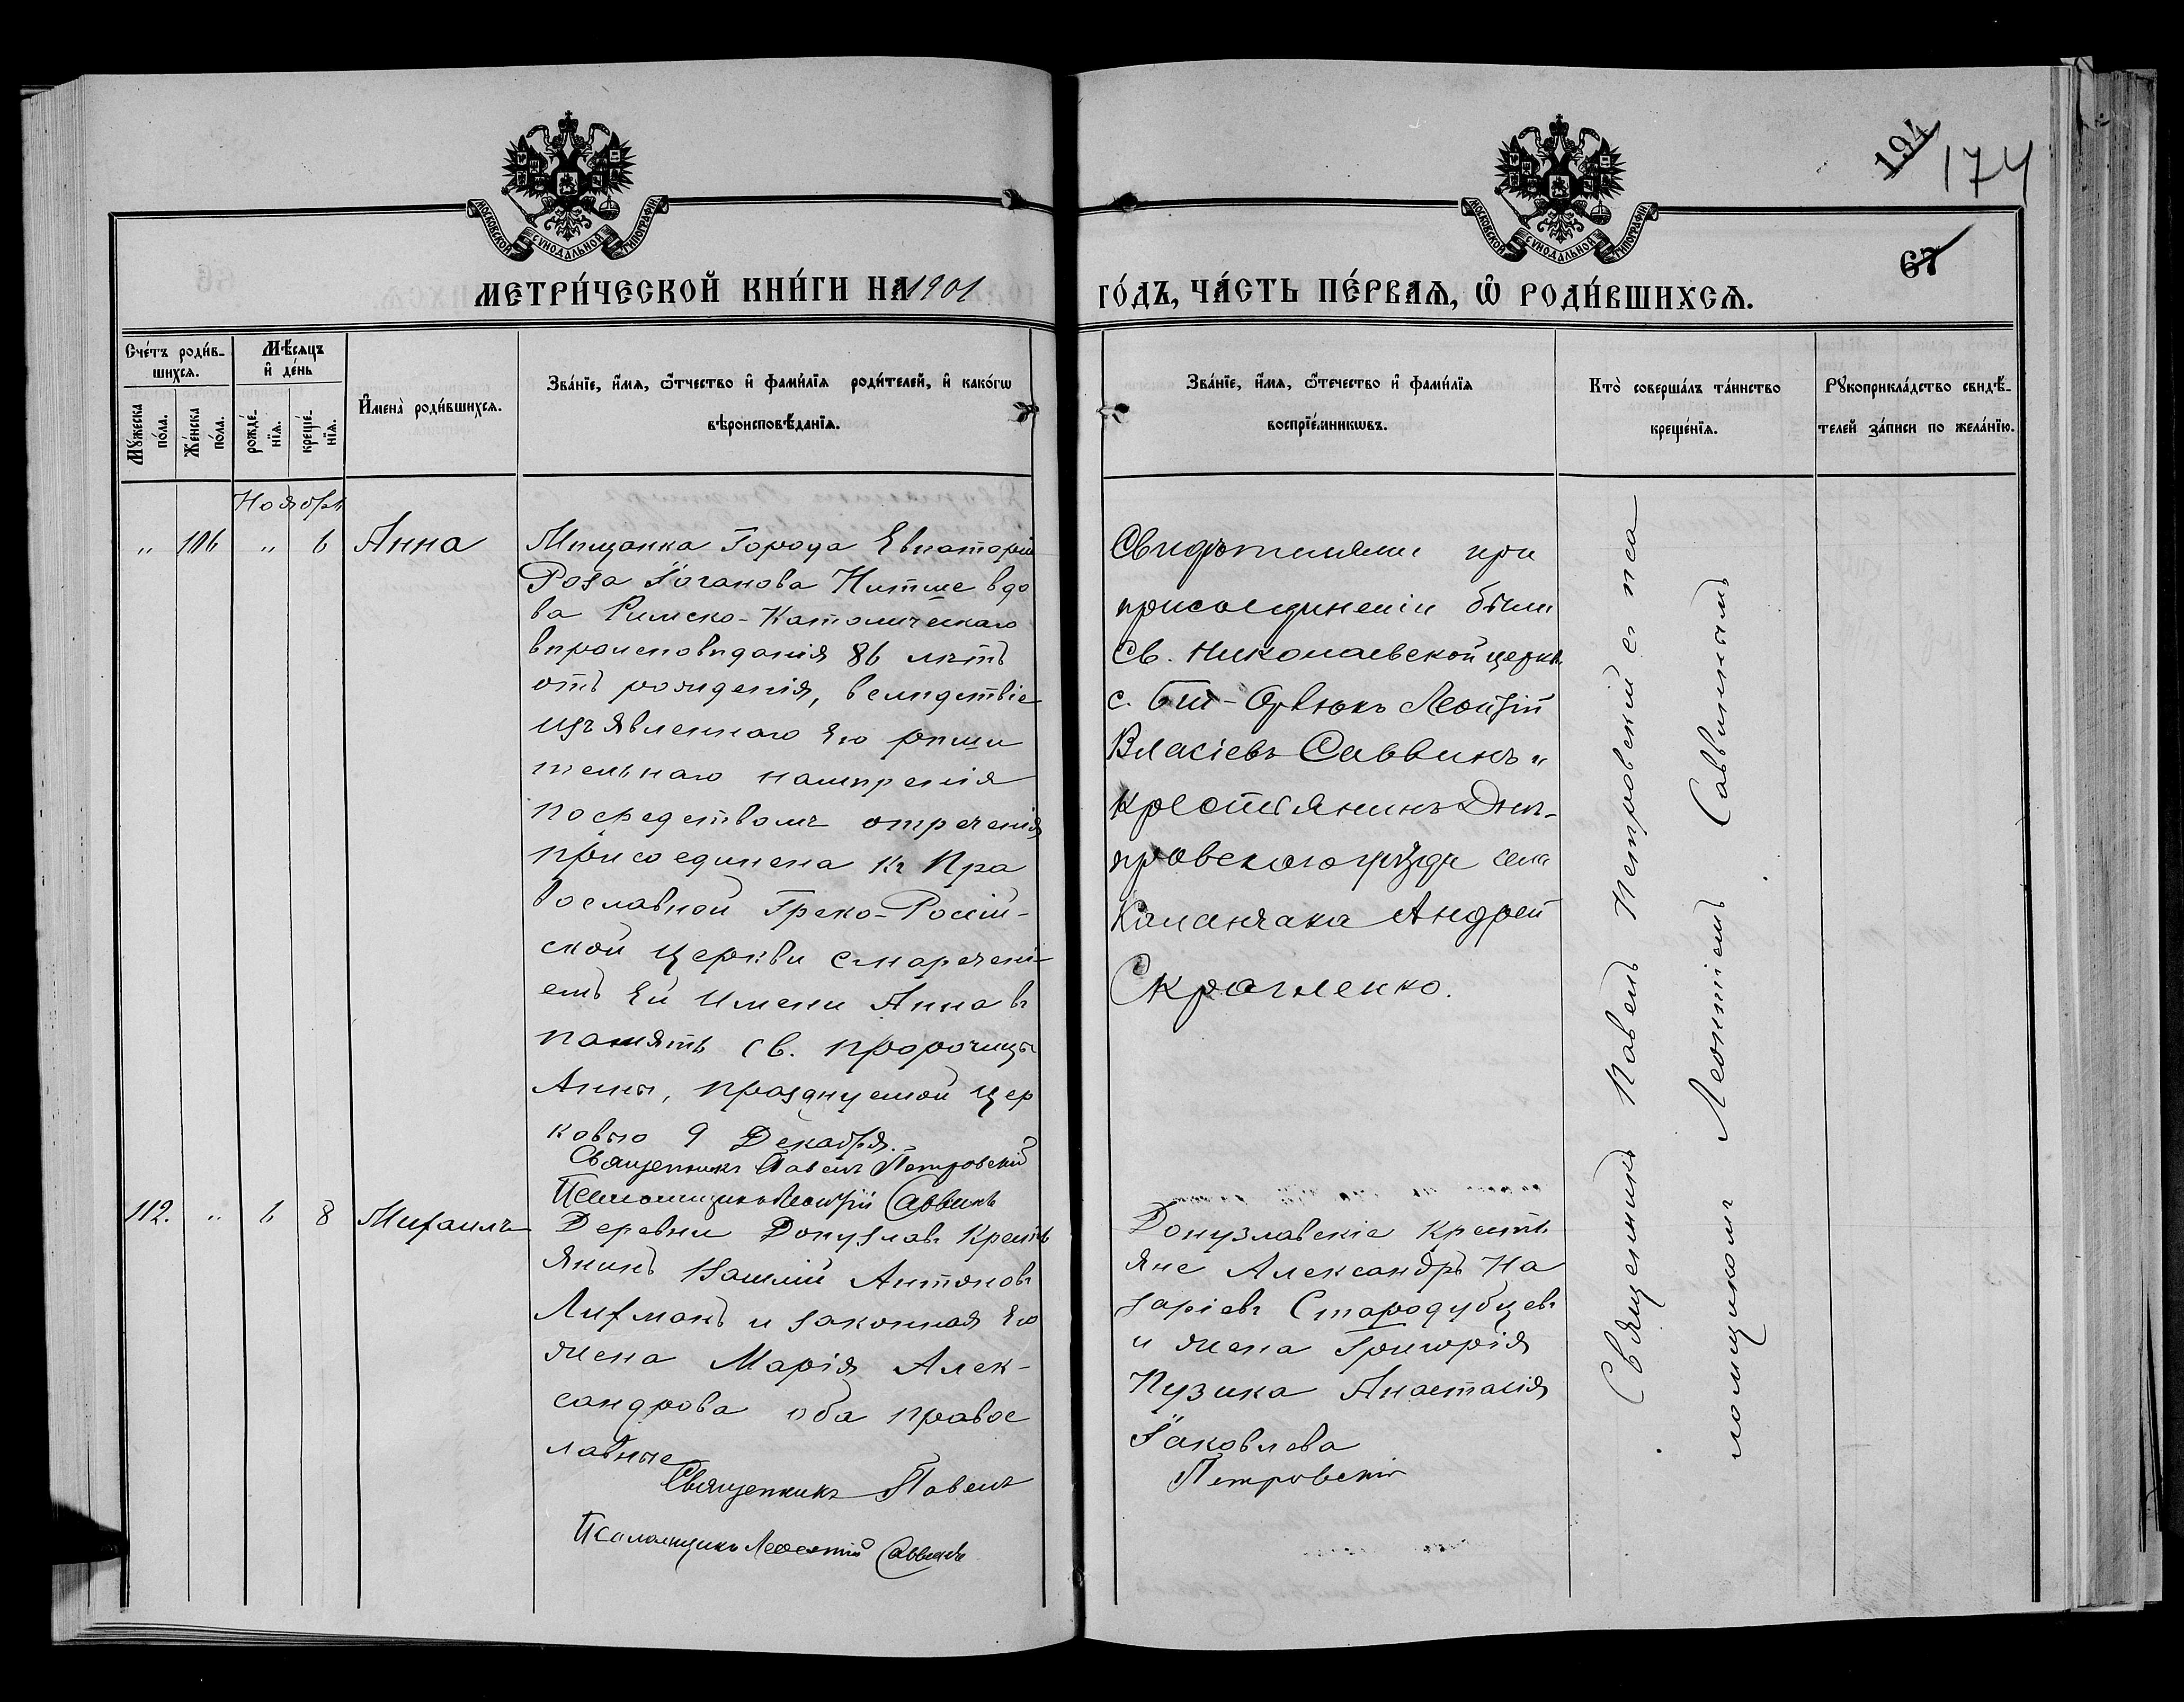 194
174
67
МОСКОВСКОЙ СѴНОДАЛЬНОЙ ТИПОГРАФІИ
МОСКОВСКОЙ СѴНОДАЛЬНОЙ ТИПОГРАФІИ
МЕТРИ́ЧЕСКОЙ КНИ́ГИ НА 1901
ГО́ДЪ, ЧА́СТЬ ПЕ́РВАѦ, Ѡ҆ РОДИ́ВШИХСѦ.
Сче́тъ роди́в-
шихсѧ.
Мꙋ́жеска по́ла.
Же́нска по́ла.
Мѣ́сѧцъ и҆ де́нь
рожде́-нїѧ.
креще́-нїѧ.
И҆мена̀ роди́вшихсѧ.
Зва́нїе, и҆́мѧ, ѿтчество и҆ фами́лїѧ роди́телей, и҆ како́гѡ
вѣроисповѣ́данїѧ.
Зва́нїе, и҆́мѧ, ѿтечество и҆ фами́лїѧ
воспрїе́мникѡвъ.
Кто̀ соверша́лъ та́инство
креще́нїѧ.
Рꙋкоприкла́дство свидѣ́-
телей за́писи по жела́нїю.
Ноябрь
" 106 " 6 Анна
Мѣщанка Города Евпаторіи
Роза Іоганова Нитше вдо
ва Римско-Католическаго
вѣроисповѣданія 86 лѣтъ
отъ рожденія, вслѣдствіе
изъявленнаго Ею рѣши
тельнаго намѣренія
посредствомъ отреченія
присоединена къ Пра
вославной Греко-Россій-
ской Церкви съ наречені-
емъ Ей Имени Анна въ
память св. пророчицы
Анны, празднуемой Цер
ковью 9 Декабря.
Священникъ Павелъ Петровскій
Псаломщикъ Леонтій Саввинъ
Свидѣтелями при
присоединеніи были
Св. Николаевской церкви
с. Біт-Орлюкъ Леонтій
Власіевъ Саввинъ и
крестьянинъ Днѣ-
провскаго уѣзда села
Каланчака Андрей
Скрагленко.
Священникъ Павелъ Петровскій съ пса
ломщикомъ Леонтіемъ Саввинымъ
112. " 6 8 Михаилъ
Деревни Донузлавъ Кресть
янинъ Василій Антоновъ
Лихманъ и законная Его
жена Марія Алек-
сандрова оба правос
лавные
Священникъ Павелъ
Псаломщикъ Леонтій Саввинъ
Донузлавскіе Кресть
яне Александръ На
заріевъ Стародубцевъ
и жена Григорія
Пузика Анастасія
Іаковлева
Петровскій